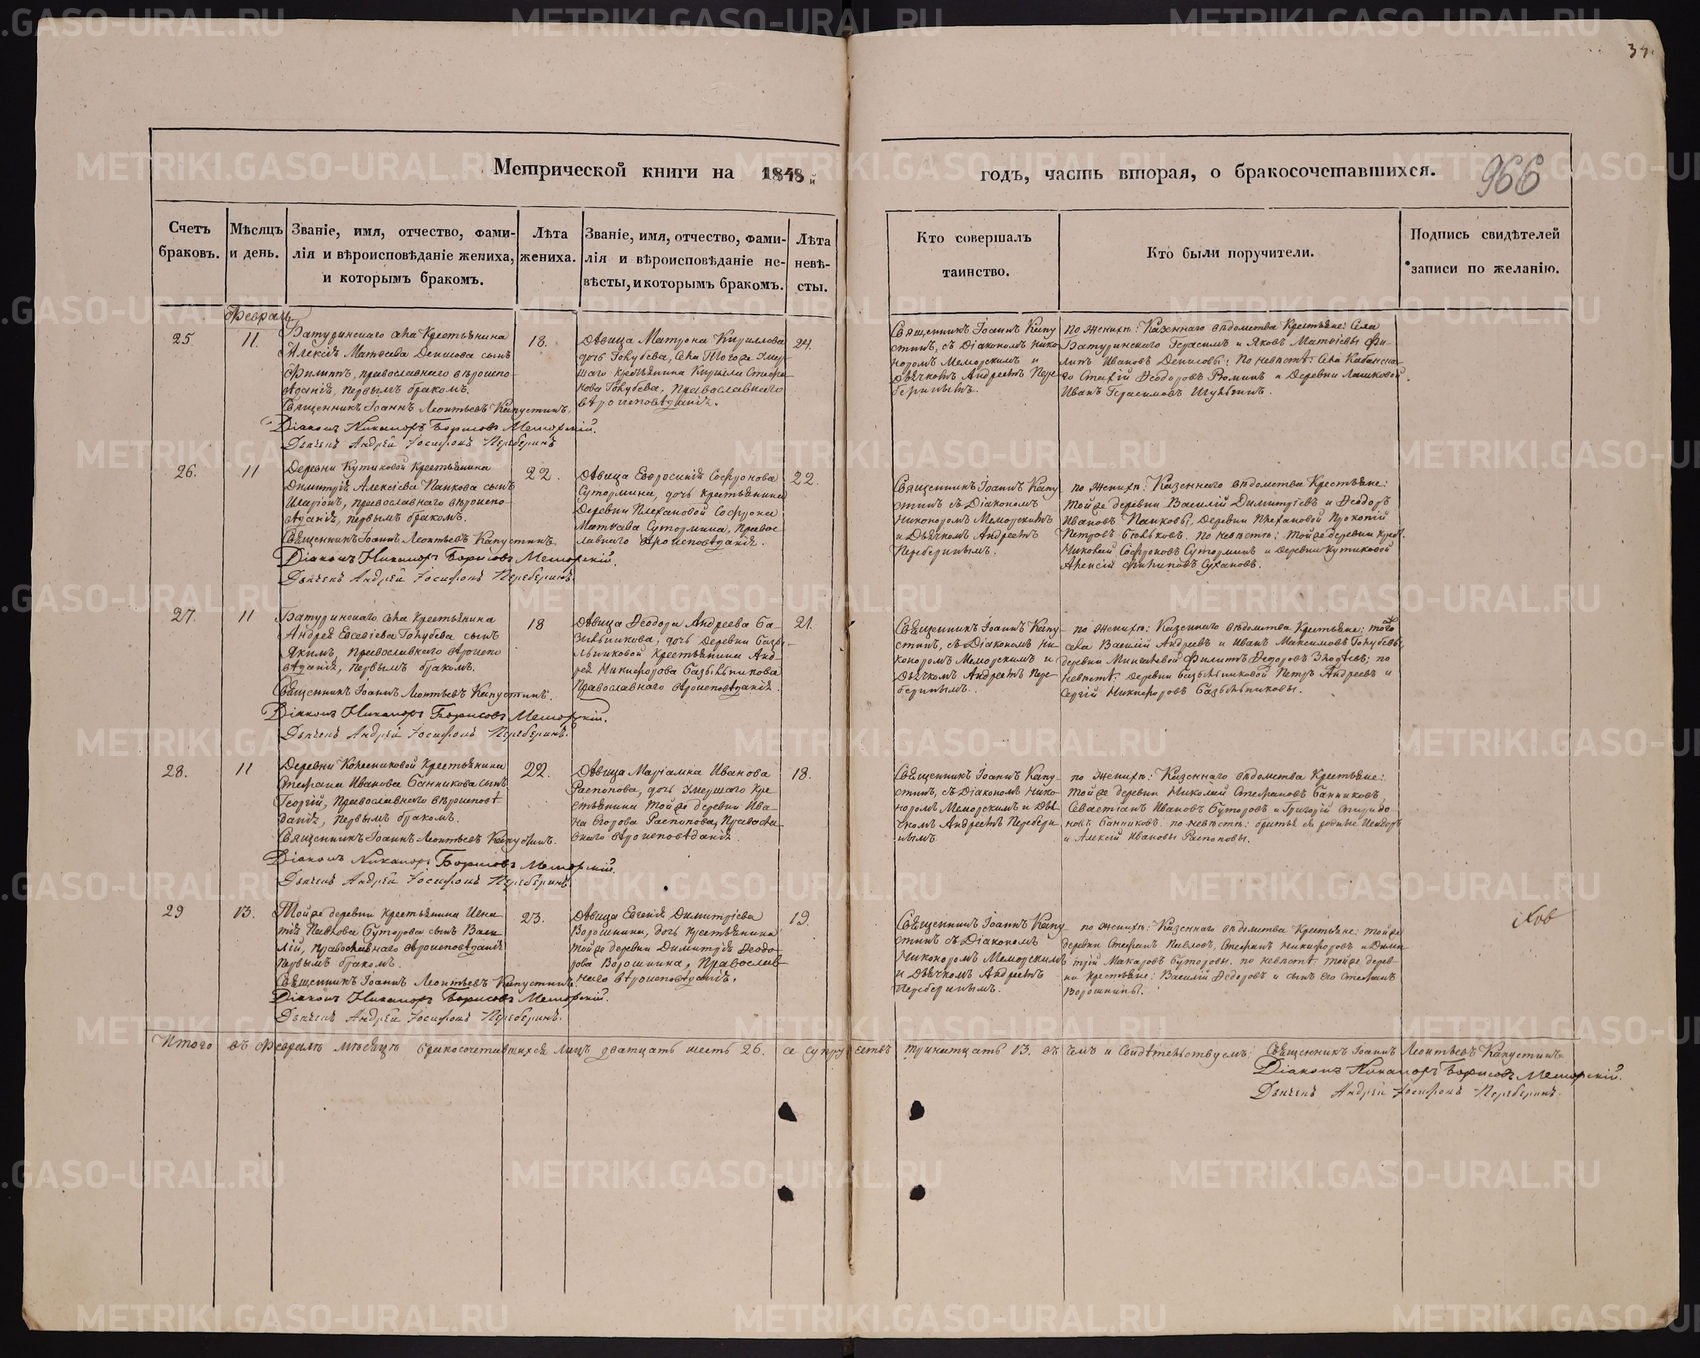 34.
966
Метрической книги на 1848й годъ, часть вторая, о бракосочетавшихся.
Счетъ браковъ.
Мѣсяцъ и день.
Званіе, имя, отчество, фами-
лія и вѣроисповѣданіе жениха,
и которымъ бракомъ.
Лѣта жениха.
Званіе, имя, отчество, фами-
лія и вѣроисповѣданіе не-
вѣсты, и которымъ бракомъ.
Лѣта
невѣ-
сты.
Кто совершалъ
таинство.
Кто были поручители.
Подпись свидѣтелей
записи по желанію.
Февраль
25
11.
Батуринскаго села Крестьянина
Алексія Матвеева Денисова сынъ
Филиппъ, православнаго вѣроиспо-
вѣданія, первымъ бракомъ.
Священникъ Іоаннъ Леонтьевъ Капустинъ.
Діаконъ Никаноръ Борисовъ Меморскій.
Дьячекъ Андрей Іосифовъ Переберинъ
18.
Дѣвица Матрона Кирилова
дочь Голубева, села
шаго крестьянина Кирила Стефа-
нова Голубева, Православнаго
вѣроисповѣданія.
21.
Священникъ Іоаннъ Капу
стинъ, съ Діакономъ Нико
норомъ Меморскимъ и
Дьячкомъ Андреемъ Пере-
беринымъ.
По женихѣ: Казеннаго вѣдомства Крестьяне: Села
Батуринскаго Герасимъ и Яковъ Матвеевы Фи-
липъ Ивановъ Денисовы: По невѣстѣ: Села
го Феодоровъ и Деревни
Иванъ Герасимовъ
26.
11
Деревни Кутиковой Крестьянина
Димитрія Алексіева Панкова сынъ
Иларіонъ, православнаго вѣроиспо-
вѣданія, первымъ бракомъ.
Священникъ Іоаннъ Леонтьевъ Капустинъ.
Діаконъ Никаноръ Борисовъ Меморскій.
Дьячекъ Андрей Іосифовъ Переберинъ.
22.
Дѣвица Евфросинія Софронова
Сутормина, дочь крестьянина
Деревни Плехановой Софрона
Матвеева Сутормина, Правос-
лавнаго вѣроисповѣданія.
22.
Священникъ Іоаннъ Капу
стинъ съ Діакономъ
Никоноромъ Меморскимъ
и Дьячкомъ Андреемъ
Переберинымъ.
по женихѣ: Казеннаго вѣдомства Крестьяне:
Тойже деревни Василій Димитріевъ и Феодоръ
Ивановъ Панковы, Деревни Плехановой Прокопій
Петровъ По невѣстѣ: Тойже деревни
Николай Софроновъ Суторминъ и Деревни Кутиковой
Алексій Филиповъ Сухановъ.
27.
11
Батуринскаго села Крестьянина
Андрея Евсевіева Голубева сынъ
Якимъ, Православнаго вѣроиспо
вѣданія, первымъ бракомъ.
Священникъ Іоаннъ Леонтьевъ Капустинъ.
Діаконъ Никаноръ Борисовъ Меморскій.
Дьячекъ Андрей Іосифовъ Переберинъ.
18
Дѣвица Феодора Андреева Ба
зыльникова, дочь Деревни Базы-
льниковой Крестьянина Анд
рея Никифорова Базыльникова
Православнаго вѣроисповѣданія.
21.
Священникъ Іоаннъ Капу-
стинъ, съ Діакономъ Ни-
конoромъ Меморскимъ и
Дьячкомъ Андреемъ Пере-
беринымъ.
по женихѣ: Казеннаго вѣдомства Крестьяне: того
села Василій Андреевъ и Иванъ Максимовъ Голубевы,
деревни Филипъ Федоровъ по
невѣстѣ: деревни Базыльниковой Петръ Андреевъ и
Сергій Никифоровъ Базыльниковы.
28.
11
Деревни Колесниковой Крестьянина
Стефана Иванова Банникова сынъ
Георгій, Православнаго вѣроисповѣ
данія, первымъ бракомъ.
Священникъ Іоаннъ Леонтьевъ Капустинъ.
Діаконъ Никаноръ Борисовъ Меморскій.
Дьячекъ Андрей Іосифовъ Переберинъ.
22.
Дѣвица Маріамна Иванова
Распопова, дочь умершаго кре
стьянина тойже деревни Ива-
на Егорова Распопова, Правосла-
внаго вѣроисповѣданія
18.
Священникъ Іоаннъ Капу-
стинъ, съ Діакономъ Нико-
норомъ Меморскимъ и Дьі-
чкомъ Андреемъ Перебери-
нымъ
по женихѣ: Казеннаго вѣдомства Крестьяне:
Тойже деревни Николай Стефановъ Банниковъ,
Севастіанъ Ивановъ Буторовъ и Григорій Спиридо
новъ Банниковъ. по невѣстѣ: братья ея родные Исидоръ
и Алексій Ивановы Распоповы.
29
13.
Тойже деревни крестьянина Игна
тія Павлова Буторова сынъ Васи
лій, православнаго вѣроисповѣданія
первымъ бракомъ.
Священникъ Іоаннъ Леонтьевъ Капустинъ.
Діаконъ Никаноръ Борисовъ Меморскій.
Дьячекъ Андрей Іосифовъ Переберинъ.
23.
Дѣвица Евгенія Димитріева
Ворошнина, дочь крестьянина
тойже деревни Димитрія Феодо-
рова Ворошнина, Православ-
наго вѣроисповѣданія.
19.
Священникъ Іоаннъ Капу-
стинъ съ Діакономъ
Никоноромъ Меморскимъ
и Дьячкомъ Андреемъ
Переберинымъ.
по женихѣ: Казеннаго вѣдомства Крестьяне: тойже
деревни Стефанъ Павловъ, Стефанъ Никифоровъ и Дими
трій Макаровъ Буторовы. по невѣстѣ: тойже дерев-
ни крестьяне: Василій Федоровъ и сынъ его Стефанъ
Ворошнины.
Итого въ Февралѣ мѣсяцѣ бракосочетавшихся лицъ двадцать шесть 26. а супружествъ тринатцать 13. въ чемъ и Свидѣтельствуемъ: Священникъ Іоаннъ Леонтьевъ Капустинъ
Діаконъ Никаноръ Борисовъ Меморскій.
Дьячекъ Андрей Іосифовъ Переберинъ.
METRIKI.GASO-URAL.RU